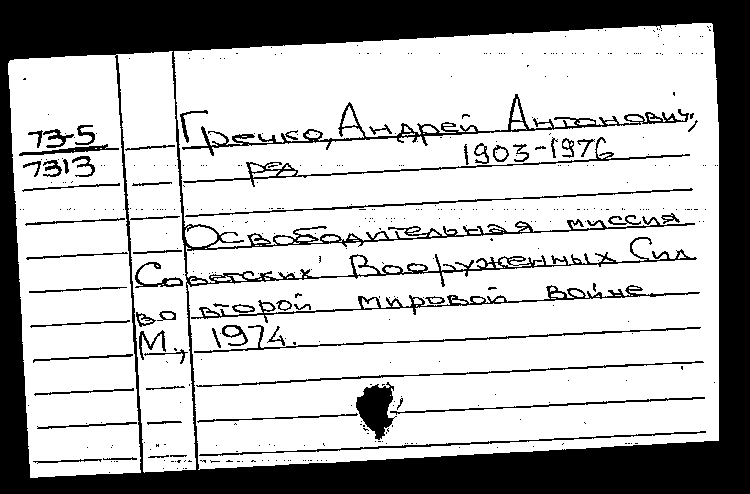 73-5
7313
Гречко, Андрей Антонович,
ред. 1903-1976
Освободительная миссия
Советских Вооруженных Сил
во второй мировой войне.
М., 1974.